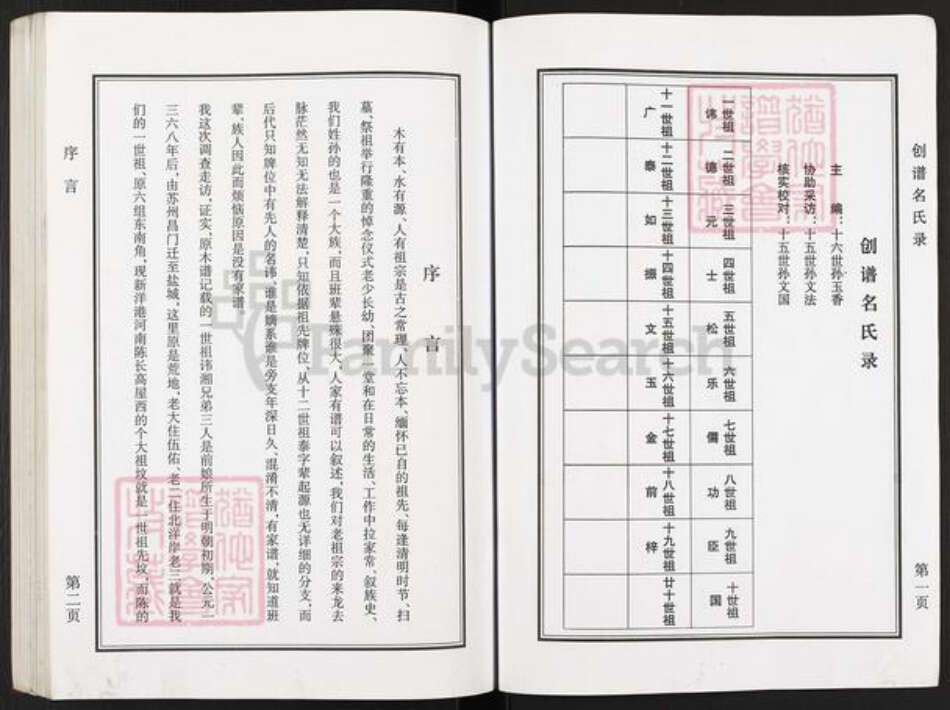 创谱名氏录
第一页
创谱名氏录
主编：十六世孙玉香
协助采访：十五世孙文法
核实校对：十五世孙文国
一世祖 讳
二世祖 德
三世祖 元
四世祖 士
五世祖 松
六世祖 乐
七世祖 儒
八世祖 功
九世祖 臣
十世祖 国
十一世祖 广
十二世祖 泰
十三世祖 如
十四世祖 振
十五世祖 文
十六世祖 玉
十七世祖 金
十八世祖 前
十九世祖 梓
廿十世祖
序言
木有本、水有源、人有祖宗是古之常理,人不忘本、缅怀已自的祖先、每逢清明时节、扫
墓、祭祖举行隆重的悼念仪式老少长幼、团聚一堂和在日常的生活、工作中拉家常、叙族史、
我们姓孙的也是一个大族,而且班辈悬殊很大、人家有谱可以叙述,我们对老祖宗的来龙去
脉茫然无知无法解释清楚,只知依据祖先牌位,从十二世祖泰字辈起源也无详细的分支,而
后代只知牌位中有先人的名讳、谁是嫡系谁是旁支年深日久、混淆不清,有家谱,就知道班
辈、族人因此而烦恼原因是没有家谱,
我这次调查走访,证实,原木谱记载的一世祖讳湘兄弟三人是前娘所生于明朝初期、公元一
三六八年后,由苏州昌门迁至盐城,这里原是荒地,老大住伍佑、老二住北洋岸老三就是我
们的一世祖、原六组东南角,现新洋港河南陈长高屋西的个大祖坟就是一世祖先坟,而陈的
序言
第二页
FamilySearch